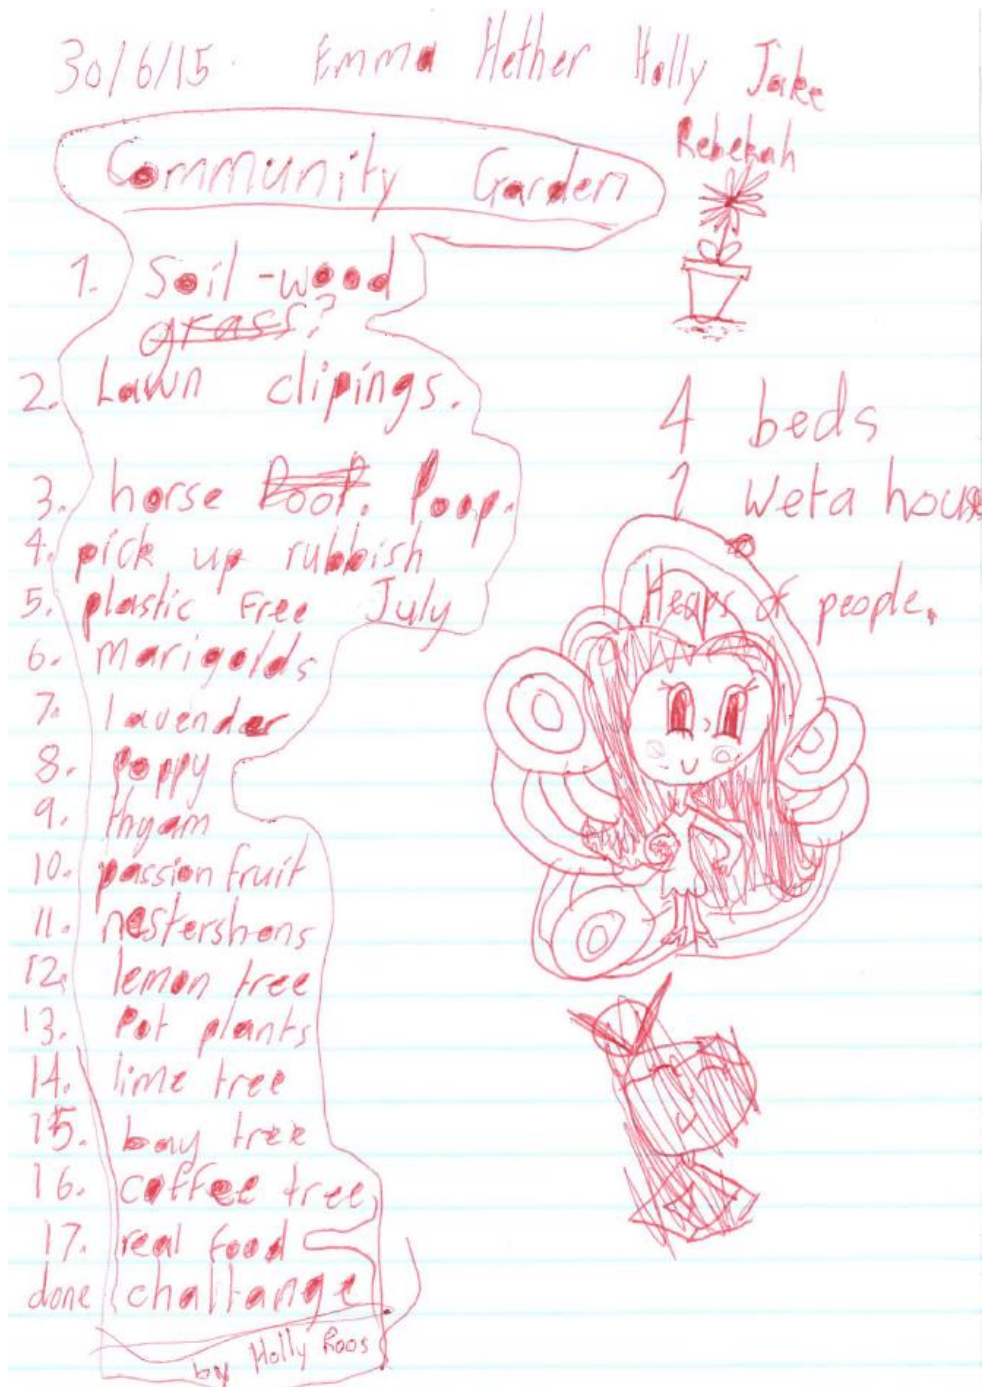 30/6/15. Emma Hether Holly Jake
Rebekah
Community Garden
1. Soil - wood
grass?
2. Lawn clipings.
3. horse Poop. Poop.
4. pick up rubbish
5. plastic Free July
6. marigolds
7. lavender
8. poppy
9. thyam
10. passion fruit
11. nestershens
12. lemon tree
13. Pot plants
14. lime tree
15. bay tree
16. coffee tree
17. real food
done challange
by Holly Roos
4 beds
1 weta house
Heaps of people.